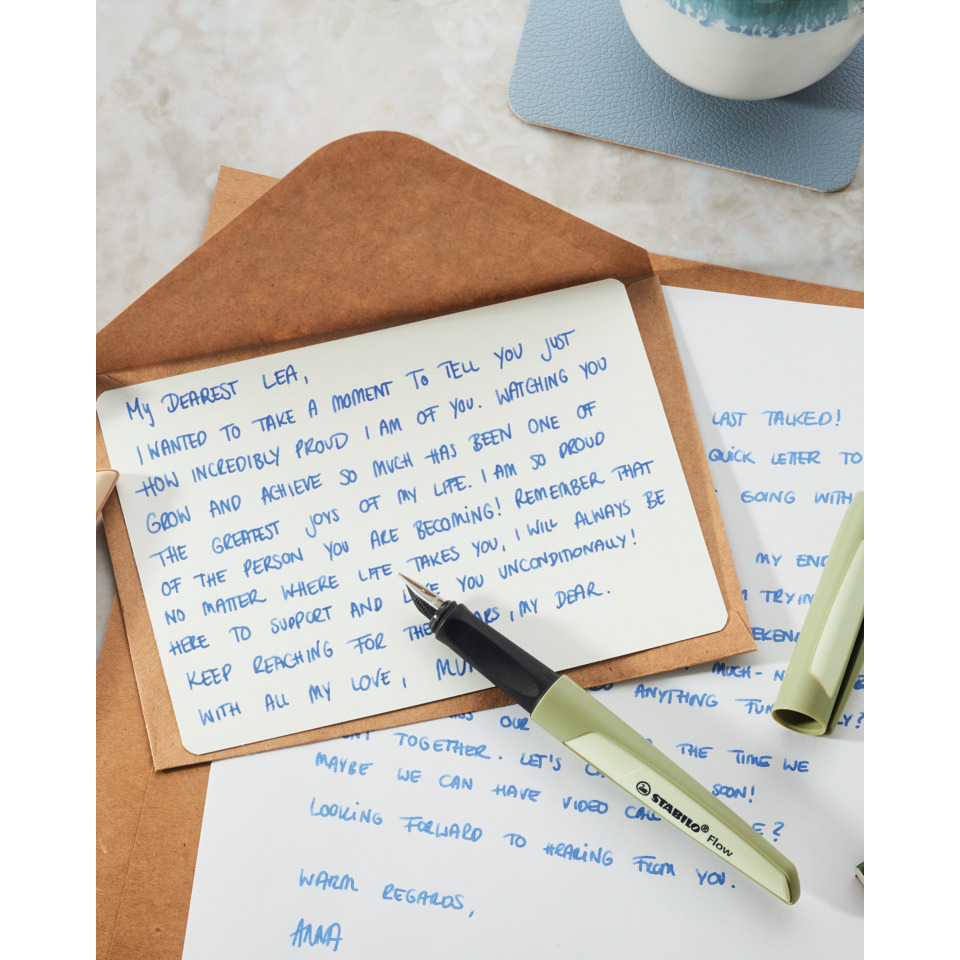 My DEAREST LEA,
I WANTED TO TAKE A MOMENT TO TELL YOU JUST
HOW INCREDIBLY PROUD I AM OF YOU. WATCHING YOU
GROW AND ACHIEVE SO MUCH HAS BEEN ONE OF
THE GREATEST JOYS OF MY LIFE. I AM SO PROUD
OF THE PERSON YOU ARE BECOMING! REMEMBER THAT
NO MATTER WHERE LIFE TAKES YOU, I WILL ALWAYS BE
HERE TO SUPPORT AND YOU UNCONDITIONALLY!
KEEP REACHING FOR THE ARS, MY DEAR.
WITH ALL MY LOVE, MU
LAST TALKED!
QUICK LETTER TO
GOING WITH
MY END
TRYIN
EKEN
MUCH- N
ANYTHING FUN LY?
OUR
TOGETHER. LET'S C THE TIME WE
MAYBE WE CAN HAVE VIDEO CALL SOON!
LOOKING FORWARD TO HEARING FROM YOU. E?
WARM REGARDS,
ANNA
STABILO® Flow